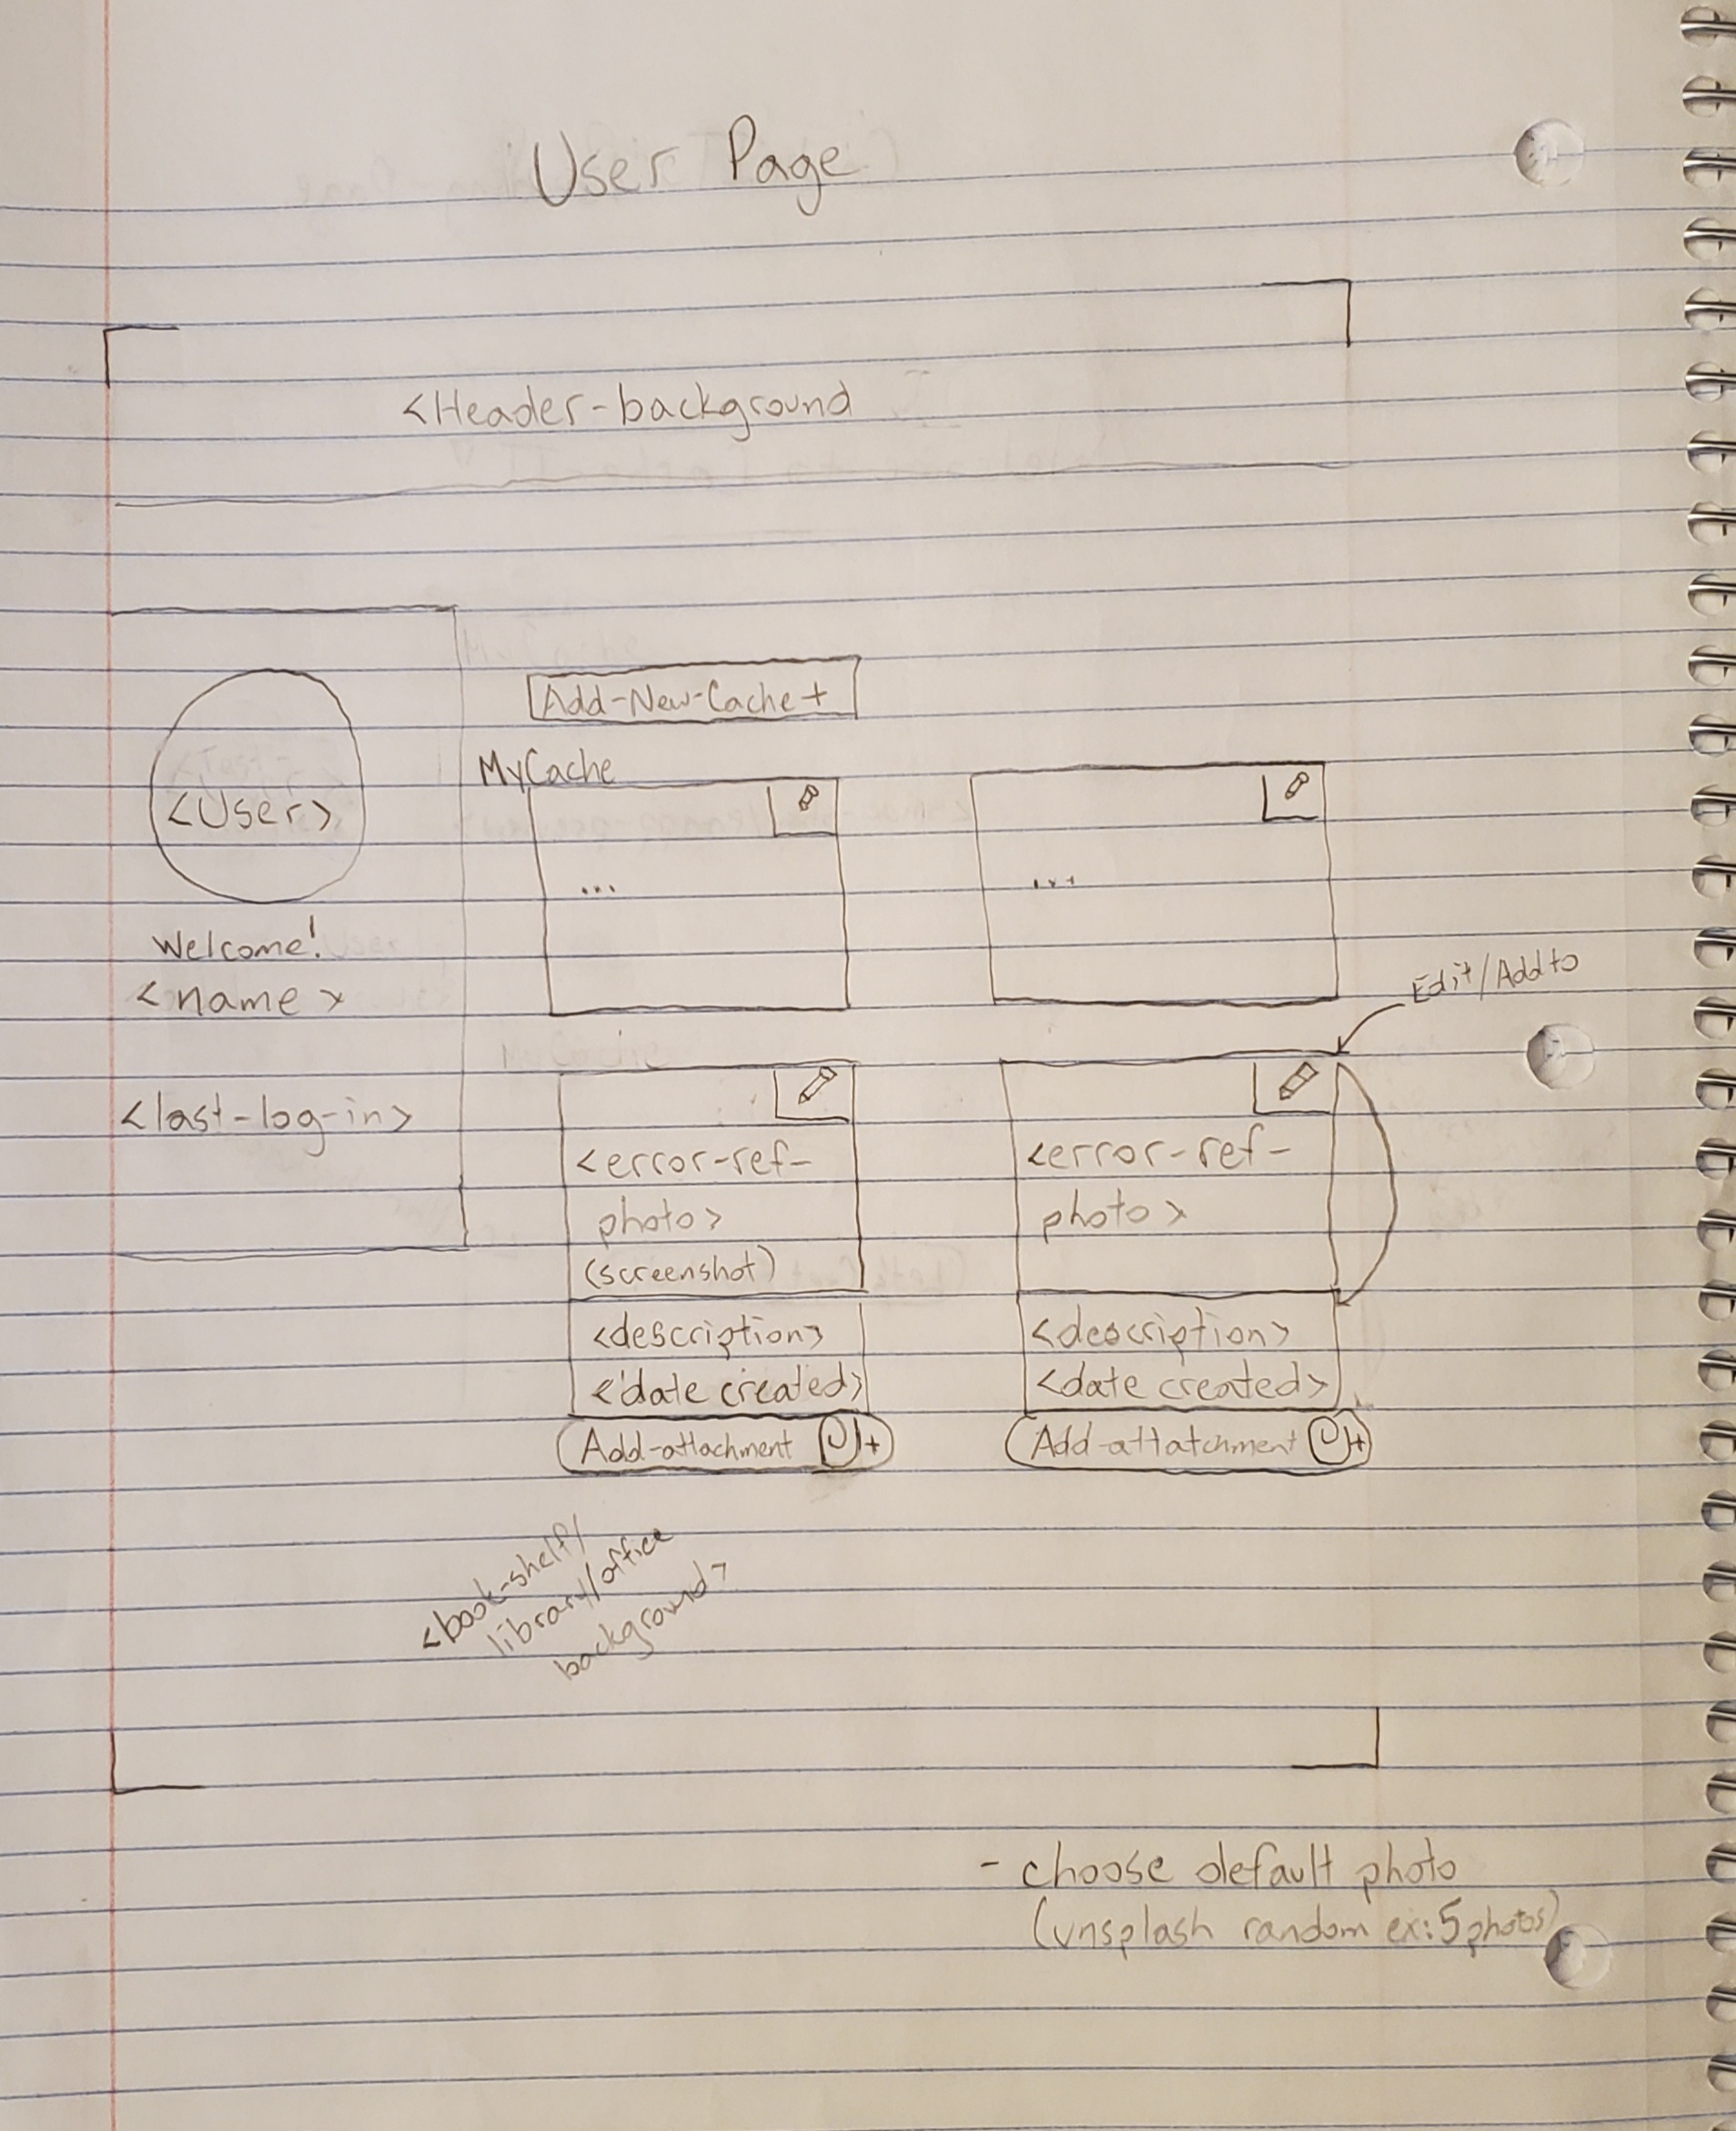 User Page
<Header-background
Add-New-Cache +
MyCache
<User>
...
...
Welcome!
<name>
Edit/Add to
<last-log-in>
<error-ref-
photo>
(screenshot)
<description>
<date created>
Add-attachment +
<error-ref-
photo>
<description>
<date created>
Add-attatchment +
<book-shelf/
library/office
background>
- choose default photo
(unsplash random ex: 5 photos)